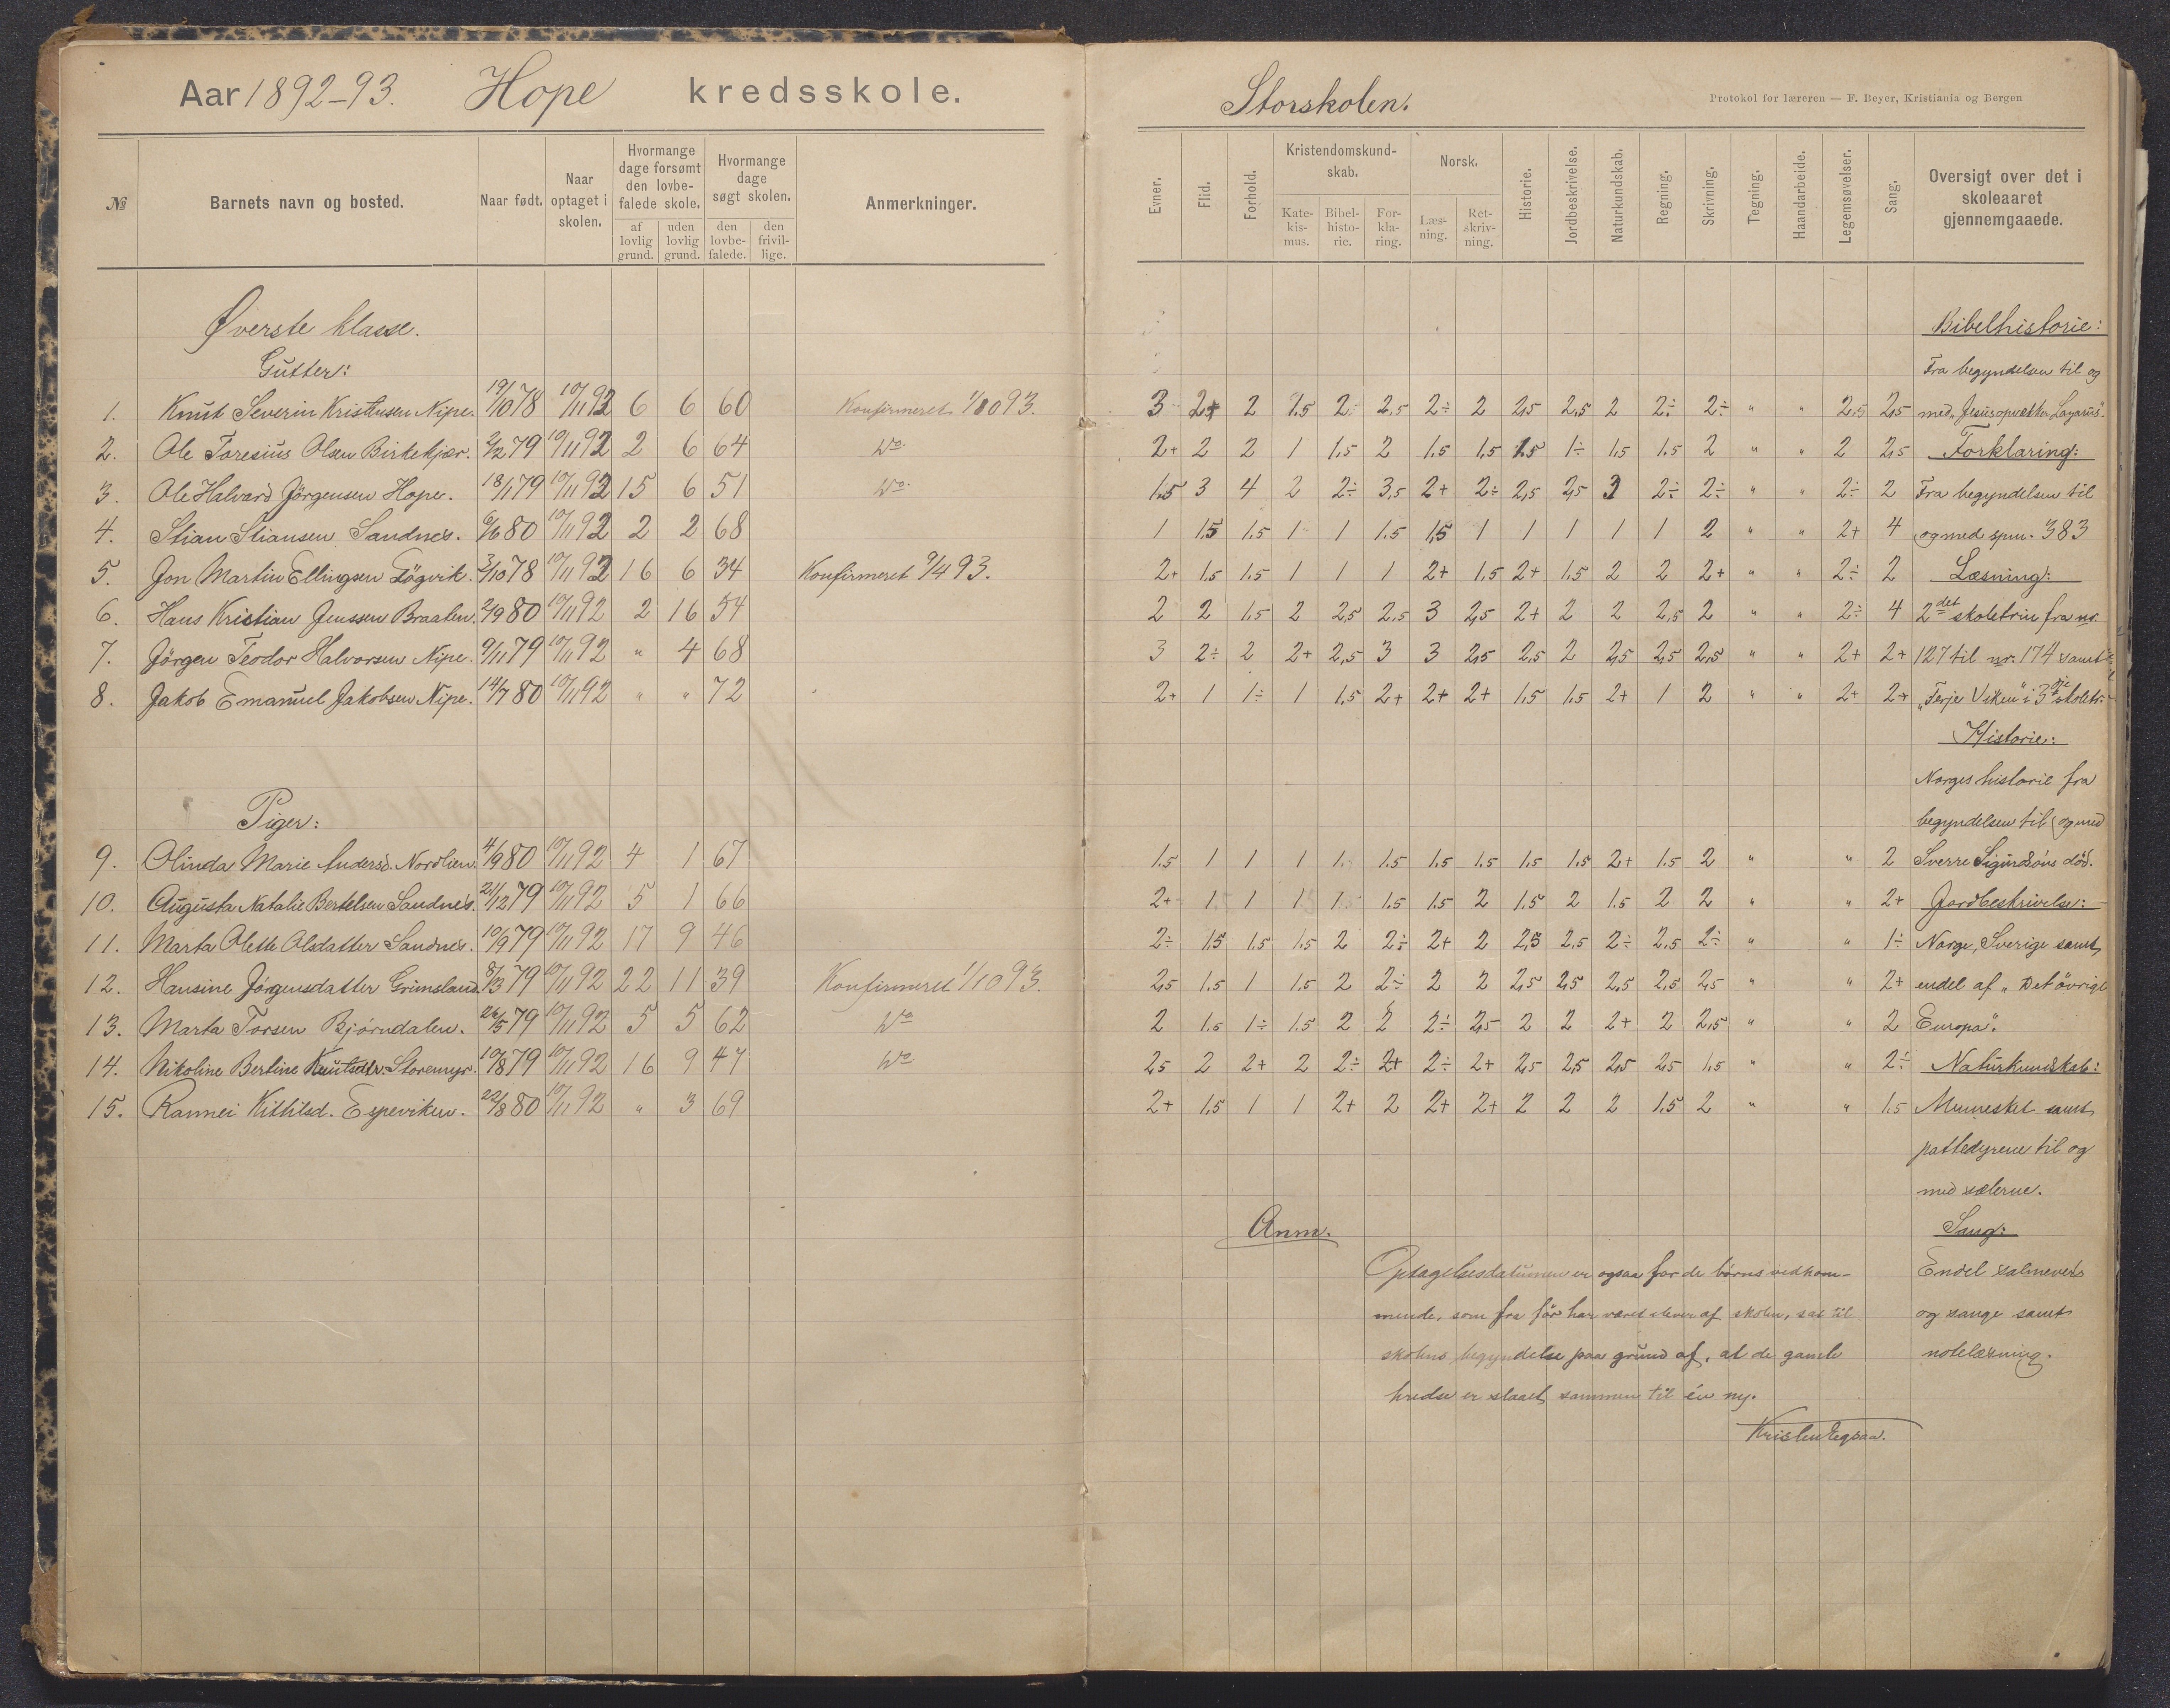 Aar 1892-93. Hope kredsskole.
№ Barnets navn og bosted. Naar født. Naar optaget i skolen. Hvormange dage forsømt den lovbefalede skole. af lovlig grund. uden lovlig grund. Hvormange dage søgt skolen. den lovbefalede. den frivillige. Anmerkninger.
Øverste klasse.
Gutter:
1. Knut Severin Kristensen Nipe. 19/10 78 10/11 92 6 6 60 Konfirmeret 1/10 93.
2. Ole Toresius Olsen Birkekjær. 2/2 79 10/11 92 2 6 64 Do
3. Ole Halvard Jörgensen Hope. 18/1 79 10/11 92 15 6 51 Do
4. Stian Stiansen Sandnes. 6/6 80 10/11 92 2 2 68
5. Jon Martin Ellingsen Fögvik. 3/10 78 10/11 92 16 6 34 Konfirmeret 9/4 93.
6. Hans Kristian Jenssen Braaten. 2/9 80 10/11 92 2 16 54
7. Jörgen Teodor Halvorsen Nipe. 9/11 79 10/11 92 " 4 68
8. Jakob Emanuel Jakobsen Nipe. 14/7 80 10/11 92 " " 72
Piger:
9. Olinda Marie Andersd. Nordlien. 4/9 80 10/11 92 4 1 67
10. Augusta Natalie Bertelsen Sandnes. 21/12 79 10/11 92 5 1 66
11. Marta Olette Olsdatter Sandnes. 10/9 79 10/11 92 17 9 46
12. Hansine Jörgensdatter Grimsland. 8/3 79 10/11 92 22 11 39 Konfirmeret 1/10 93.
13. Marta Torsen Björndalen. 26/5 79 10/11 92 5 5 62 Do
14. Nikoline Bertine Knutsdtr. Storemyr. 10/8 79 10/11 92 16 9 47 Do
15. Rannei Kittilsd. Espeviken. 22/8 80 10/11 92 " 3 69
Storskolen.
Protokol for læreren — F. Beyer, Kristiania og Bergen
Evner. Flid. Forhold. Kristendomskundskab. Katekismus. Bibelhistorie. Forklaring. Norsk. Læsning. Retskrivning. Historie. Jordbeskrivelse. Naturkundskab. Regning. Skrivning. Tegning. Haandarbeide. Legemsøvelser. Sang. Oversigt over det i skoleaaret gjennemgaaede.
Bibelhistorie:
Fra begyndelsen til og
3 2+ 2 1.5 2 2,5 2÷ 2 2,5 2,5 2 2÷ 2÷ " " 2,5 2,5 med "Jesus opvækker Lazarus".
2+ 2 2 1 1.5 2 1.5 1.5 1.5 1÷ 1.5 1.5 2 " " 2 2,5 Forklaring:
1.5 3 4 2 2÷ 3,5 2+ 2÷ 2,5 2,5 3 2÷ 2÷ " " 2÷ 2 Fra begyndelsen til
1 1.5 1.5 1 1 1.5 1.5 1 1 1 1 1 2 " " 2+ 4 og med spm. 383
2+ 1.5 1.5 1 1 1 2+ 1.5 2+ 1.5 2 2 2+ " " 2÷ 2 Læsning:
2 2 1.5 2 2,5 2,5 3 2,5 2+ 2 2 2,5 2 " " 2÷ 4 2det skoletrin fra nr.
3 2÷ 2 2+ 2,5 3 3 2,5 2,5 2 2,5 2,5 2,5 " " 2+ 2+ 127 til nr. 174 samt
2+ 1 1÷ 1 1.5 2+ 2+ 2+ 1.5 1.5 2+ 1 2 " " 2+ 2+ "Terje Viken" i 3die skoletr.
Historie:
Norges historie fra
begyndelsen til og med
1.5 1 1 1 1. 1.5 1.5 1.5 1.5 1.5 2+ 1.5 2 " " 2 Sverre Sigurdsöns död.
2+ 1 1 1 1 1.5 1.5 2 1.5 2 1.5 2 2 " " 2+ Jordbeskrivelse:
2÷ 1.5 1.5 1.5 2 2÷ 2+ 2 2,5 2,5 2÷ 2,5 2÷ " " 1÷ Norge, Sverige samt
2,5 1.5 1 1.5 2 2÷ 2 2 2,5 2,5 2,5 2,5 2,5 " " 2+ endel af "Det övrige
2 1.5 1÷ 1.5 2 2 2÷ 2,5 2 2 2+ 2 2,5 " " 2 Europa".
2,5 2 2+ 2 2÷ 2+ 2÷ 2+ 2,5 2,5 2,5 2,5 1.5 " " 2÷ Naturkundskab:
2+ 1.5 1 1 2+ 2 2+ 2+ 2 2 2 1.5 2 " " 1.5 Mennesket samt
pattedyrene til og
med sælerne.
Sang:
Endel salmevers
og sange samt
notelæsning.
Anm.
Optagelsesdatumen er ogsaa for de börns vedkom-
mende, som fra för har været elever af skolen, sat til
skolens begyndelse paa grund af, at de gamle
kredse er slaaet sammen til én ny.
Kristen Eegsaa.